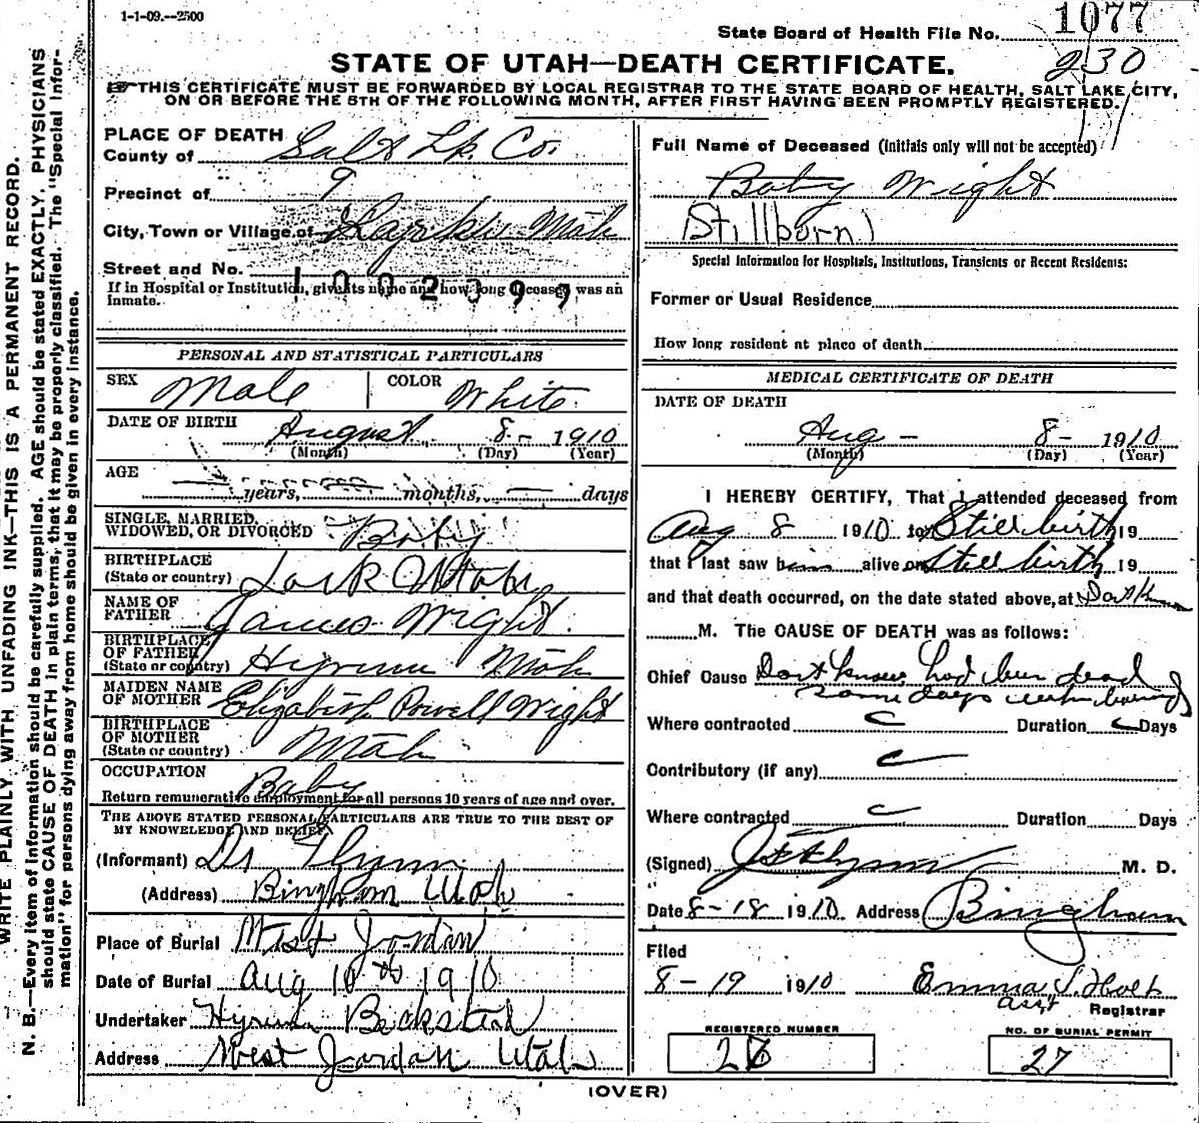 1-1-09.--2500
State Board of Health File No. 1077
230
STATE OF UTAH—DEATH CERTIFICATE.
☞THIS CERTIFICATE MUST BE FORWARDED BY LOCAL REGISTRAR TO THE STATE BOARD OF HEALTH, SALT LAKE CITY,
ON OR BEFORE THE 5TH OF THE FOLLOWING MONTH, AFTER FIRST HAVING BEEN PROMPTLY REGISTERED.
WRITE PLAINLY WITH UNFADING INK—THIS IS A PERMANENT RECORD.
N. B.—Every item of Information should be carefully supplied. AGE should be stated EXACTLY. PHYSICIANS
should state CAUSE OF DEATH in plain terms, that it may be properly classified. The "Special Infor-
mation" for persons dying away from home should be given in every instance.
PLACE OF DEATH
County of Salt Lk. Co.
Precinct of 9
City, Town or Village of
Street and No.
1002399
If in Hospital or Institution, give its name and how long deceased was an
inmate.
PERSONAL AND STATISTICAL PARTICULARS
SEX Male COLOR White
DATE OF BIRTH August 8- 1910
(Month) (Day) (Year)
AGE
years, months, days
SINGLE, MARRIED,
WIDOWED, OR DIVORCED Baby
BIRTHPLACE
(State or country) Lark Utah
NAME OF
FATHER James Wright
BIRTHPLACE
OF FATHER
(State or country) Hyrum Utah
MAIDEN NAME
OF MOTHER Elizabeth Powell Wright
BIRTHPLACE
OF MOTHER
(State or country) Utah
OCCUPATION Baby
Return remunerative employment for all persons 10 years of age and over.
THE ABOVE STATED PERSONAL PARTICULARS ARE TRUE TO THE BEST OF
MY KNOWELEDGE AND BELIEF
(Informant) Dr Flynn
(Address) Bingham Utah
Place of Burial West Jordan
Date of Burial Aug 10th 1910
Undertaker Hyrum Beckstead
Address West Jordan Utah
Full Name of Deceased (Initials only will not be accepted)
Baby Wright
(Stillborn)
Special Information for Hospitals, Institutions, Transients or Recent Residents:
Former or Usual Residence
How long resident at place of death
MEDICAL CERTIFICATE OF DEATH
DATE OF DEATH
Aug - 8- 1910
(Month) (Day) (Year)
I HEREBY CERTIFY, That I attended deceased from
Aug 8 1910 to Still birth 19
that I last saw him alive on Still birth 19
and that death occurred, on the date stated above, at Dont Know
M. The CAUSE OF DEATH was as follows:
Chief Cause Dont know had been dead
some days
Where contracted Duration Days
Contributory (if any)
Where contracted Duration Days
(Signed) Flynn M. D.
Date 8-18 1910 Address Bingham
Filed
8-19 1910 Emma S. Holt
asst Registrar
REGISTERED NUMBER
NO. OF BURIAL PERMIT
27
(OVER)